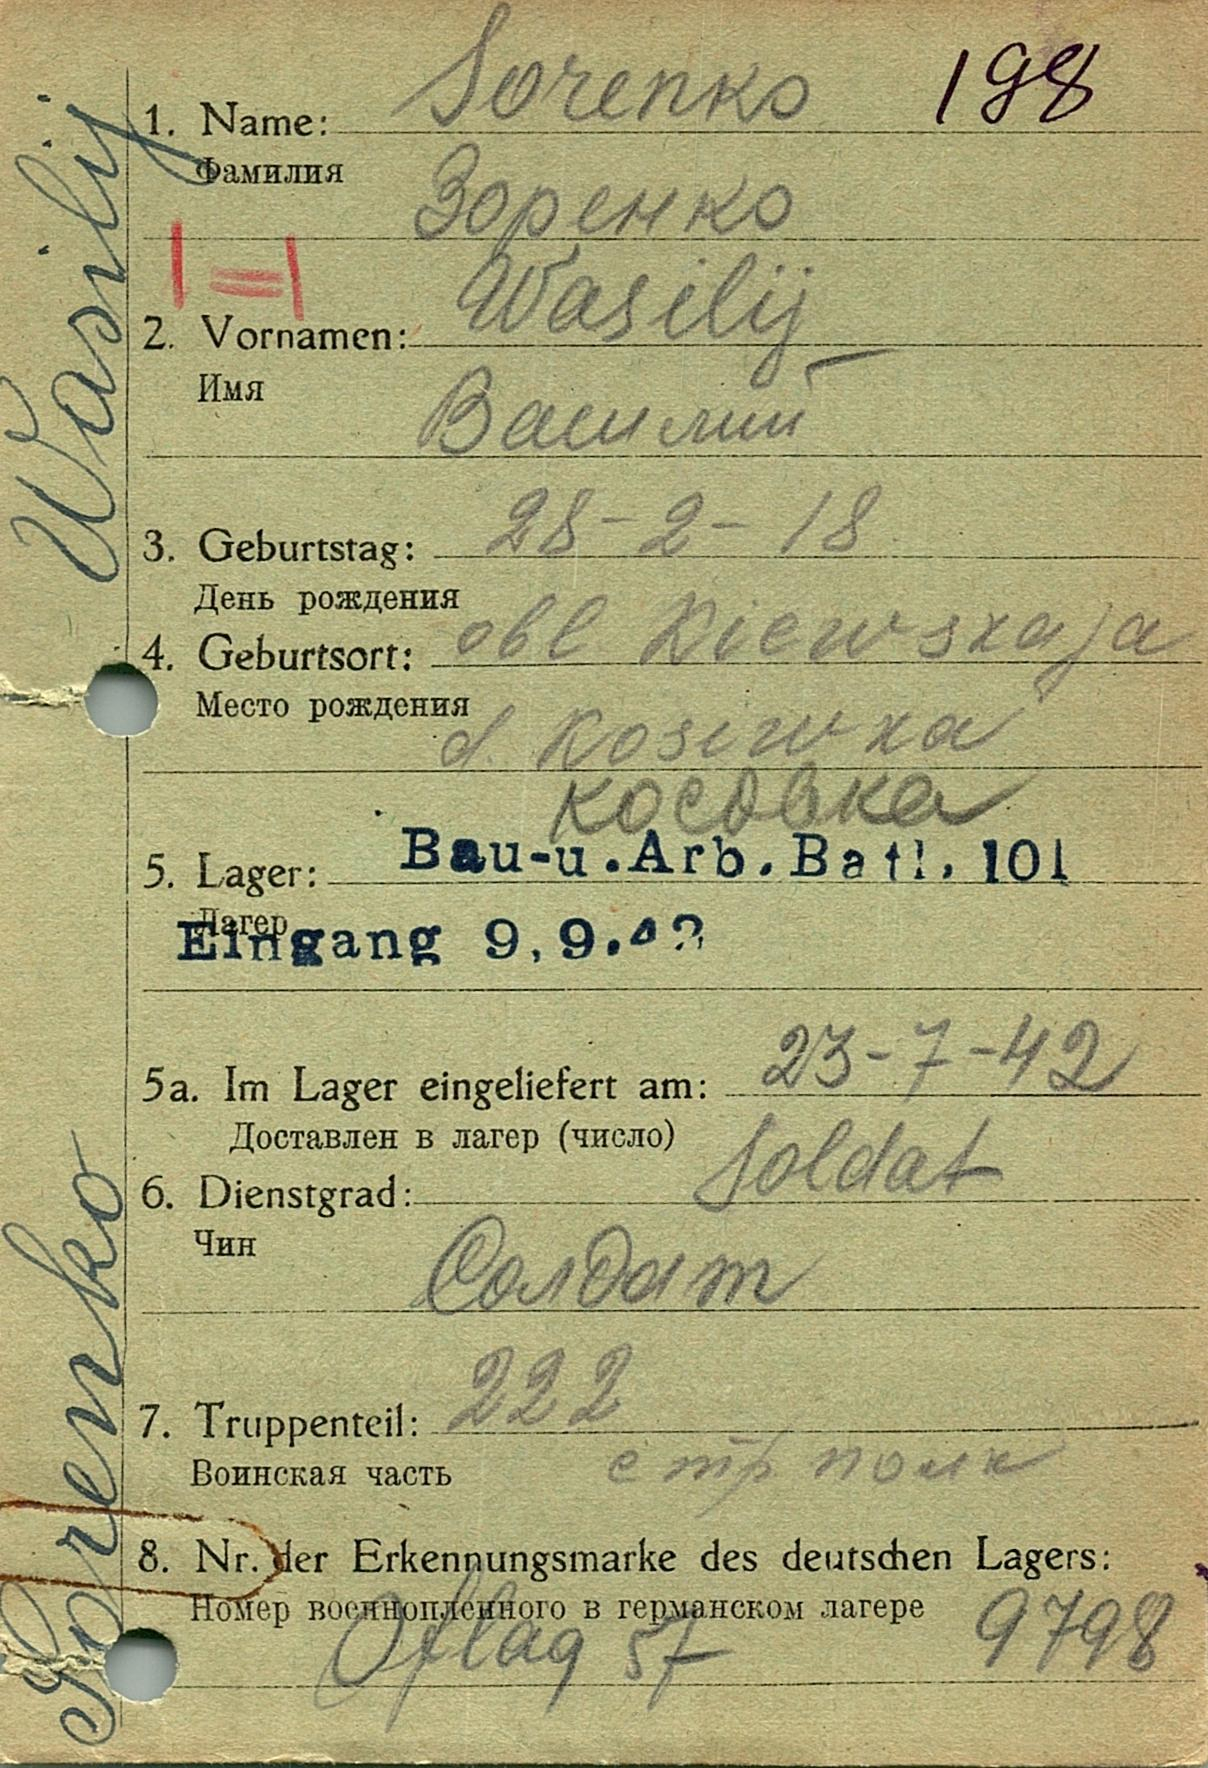 Sorenko 198
1. Name:
Фамилия
Зоренко
Wasilij
2. Vornamen:
Имя
Василий
28-2-18
3. Geburtstag:
День рождения
obl Kiewskaja
4. Geburtsort:
Место рождения
d. Kosiwka
Косовка
Bau-u.Arb.Batl. 101
5. Lager:
Лагер
Eingang 9.9.42
5a. Im Lager eingeliefert am: 23-7-42
Доставлен в лагер (число)
6. Dienstgrad: Soldat
Чин
Солдат
7. Truppenteil: 222
Воинская часть стр полк
8. Nr. der Erkennungsmarke des deutschen Lagers:
Номер военнопленного в германском лагере
Oflag 57 9798
Sorenko Wasilij